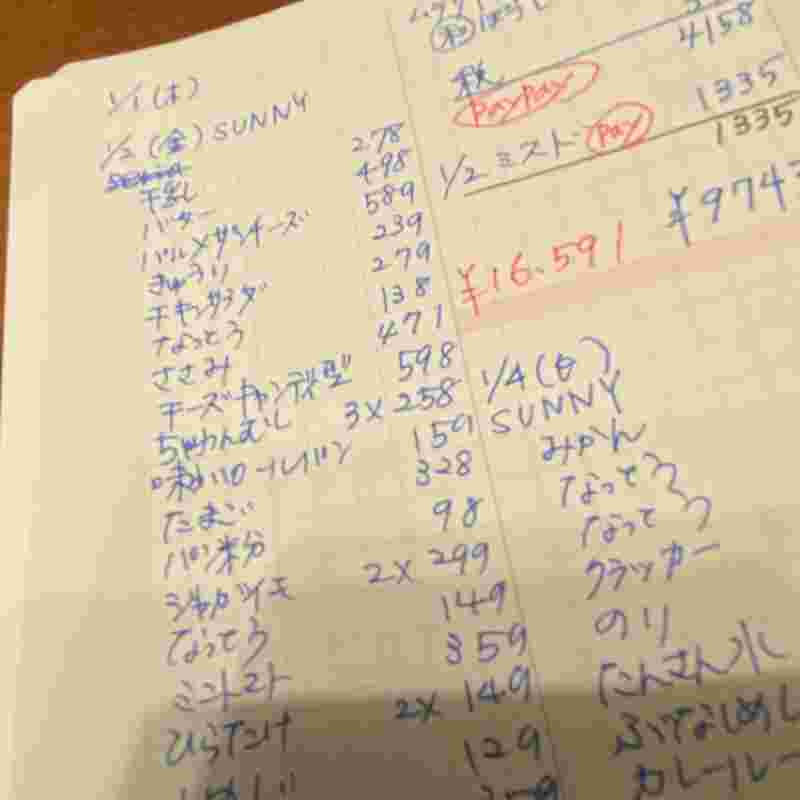 1/1 (木)
1/2 (金) SUNNY
干ぶし 278
バター 498
パルメザンチーズ 589
きゅうり 239
チキンサラダ 279
なっとう 138
ささみ 471
チーズキャンディ型 598
ちゃわんむし 3×258
味わいロールパン 159
たまご 328
パン粉 98
ジャガイモ 2×299
なっとう 149
ミニトマト 359
ひらたけ 2×149
129
4158
税
PayPay
1335
1/2 ミスト Pay 1335
¥16.591 ¥974
1/4 (日)
SUNNY
みかん
なっとう
なっとう
クラッカー
のり
たんさん水
ぶなしめし
カレールー